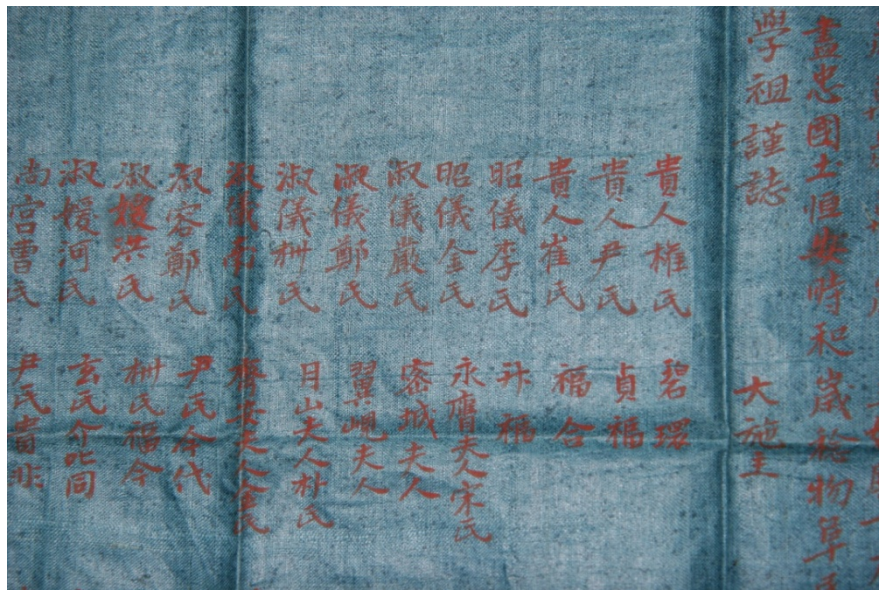 盡忠國土恒安時和歲稔物阜民
學祖謹誌 大施主
貴人權氏 碧環
貴人尹氏 貞福
貴人崔氏 福合
昭儀李氏 升福
昭儀金氏 永膺夫人宋氏
淑儀嚴氏 密城夫人
淑儀鄭氏 翼峴夫人
淑儀柳氏 月山夫人朴氏
淑儀南氏 齊安夫人金氏
淑容鄭氏 尹氏今代
淑媛洪氏 柳氏福今
淑媛河氏 玄氏介叱同
尚宮曹氏 尹氏貴非